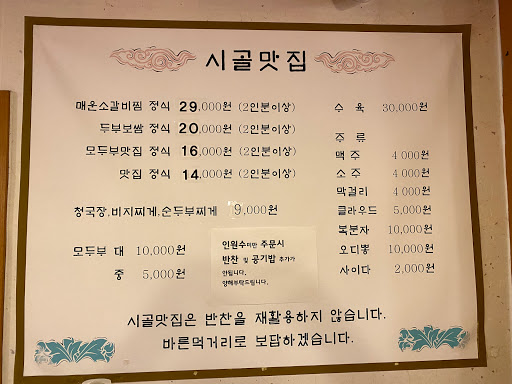 시골맛집
매운소갈비찜 정식 29,000원 (2인분이상)
두부보쌈 정식 20,000원 (2인분이상)
모두부맛집 정식 16,000원 (2인분이상)
맛집 정식 14,000원 (2인분이상)
청국장.비지찌게.순두부찌게 9,000원
모두부 대 10,000원
중 5,000원
인원수미만 주문시
반찬 및 공기밥 추가가
안됩니다.
양해부탁드립니다.
수 육 30,000원
주 류
맥 주 4,000원
소 주 4,000원
막걸리 4,000원
클라우드 5,000원
복분자 10,000원
오디뽕 10,000원
사이다 2,000원
시골맛집은 반찬을 재활용하지 않습니다.
바른먹거리로 보답하겠습니다.